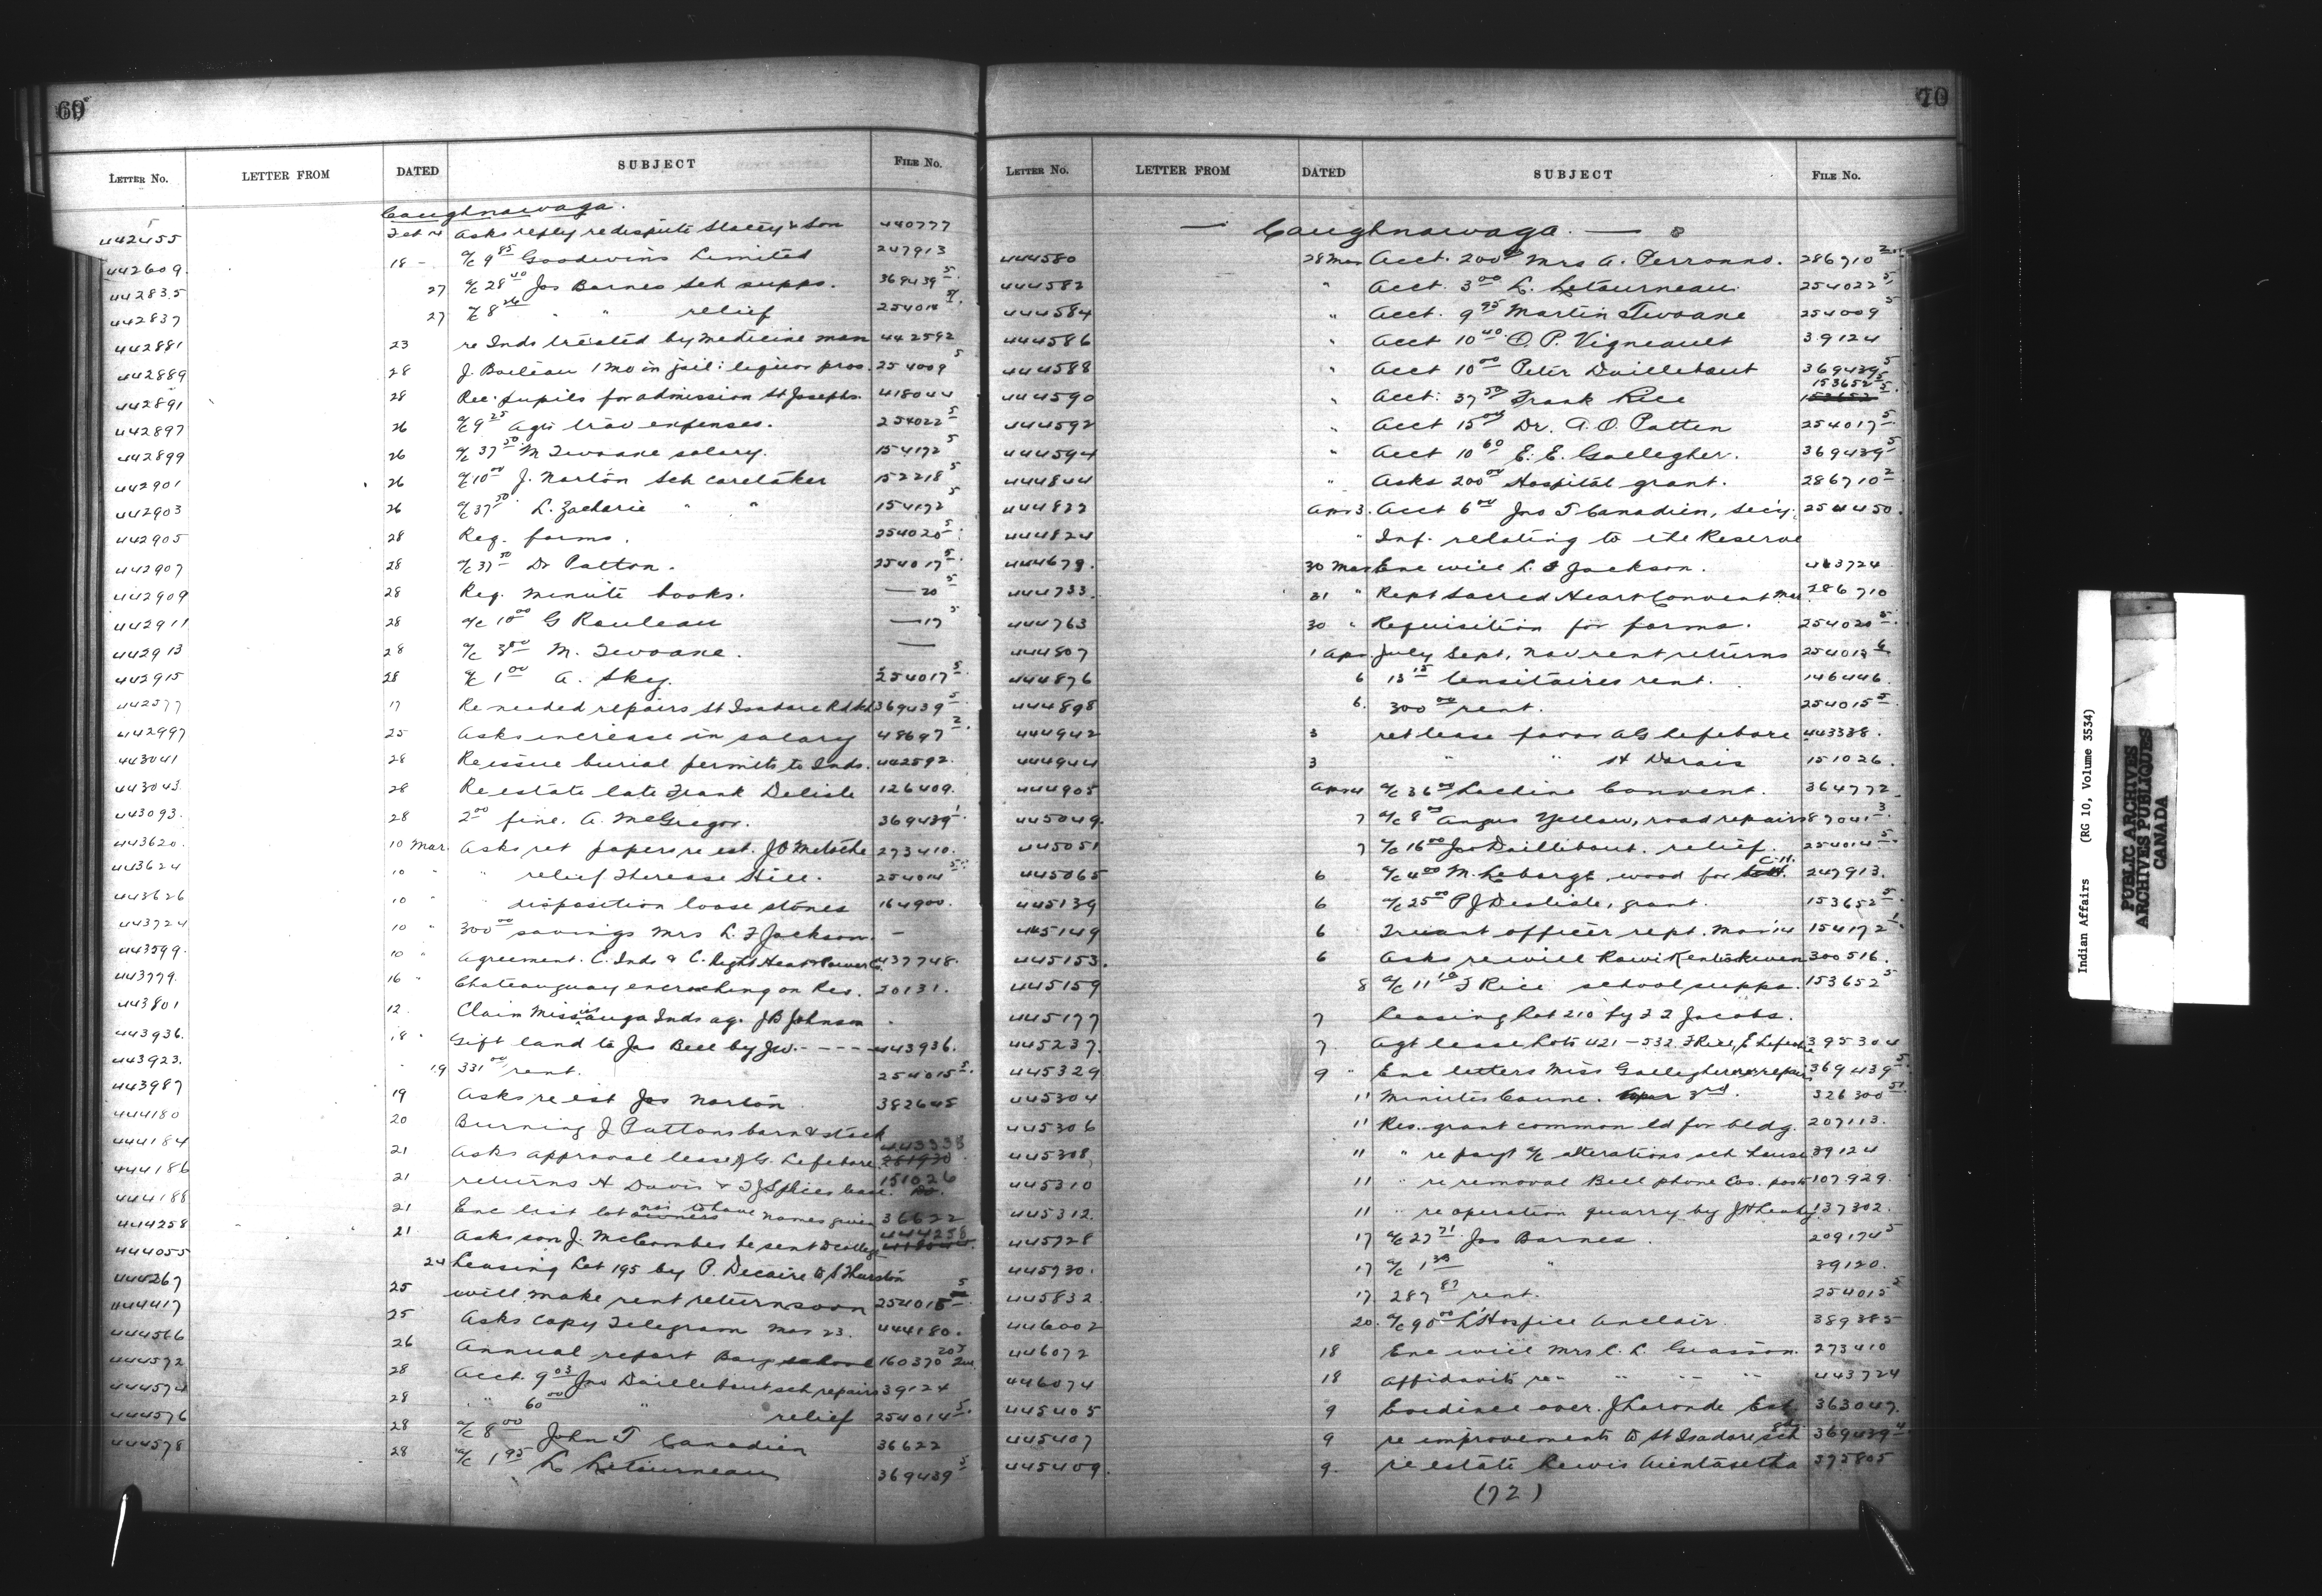 69
LETTER NO. LETTER FROM DATED SUBJECT FILE NO.
Caughnawaga.
442455 Feb 4 Asks reply re dispute Stacey & Son 440777
442609. 18 - a/c 9 85 Goodwins Limited 247913
442835 27 a/c 28 40 Jos Barnes Sch supps. 369439 5.
442837 27 a/c 8 26 " " relief 254014 5.
442881 23 re Inds treated by medicine man 442592
442889 28 J. Boileau 1 mo in jail: liquor pros. 254009 5
442891 28 Rec. pupils for admission St Josephs. 418044
442897 26 a/c 9 25 Agts trav expenses. 254022 5
442899 26 a/c 37 50 M Tewoane salary. 154172 5
442901 26 a/c 10 00 J. Norton Sch caretaker 152218 5
442903 26 a/c 37 50 L. Zacharie " " 154172 5
442905 28 Req. forms. 254020 5.
442907 28 a/c 37 50 Dr Patton. 254017 5.
442909 28 Req. minute books. — 20 5
442911 28 a/c 10 00 G Rouleau — 17 5
442913 28 a/c 3 00 M. Tewoane. —
442915 28 a/c 1 00 A. Sky. 254017 5.
442577 17 Re needed repairs St Isadore Rd Sch 369439 5.
442997 25 Asks increase in salary 48697 2.
443041 28 Re issue burial permits to Inds. 442592.
443043. 28 Re estate late Frank Delisle 126409.
443093. 28 2 00 fine. A. McGregor. 369439 1
443620. 10 Mar. Asks ret papers re est. J B Metoche 273410.
443624 10 " " relief Therese Hill. 254014 5.
443626 10 " disposition loose stones 164900.
443724 10 " 300 00 savings Mrs L. F Jackson. -
443599. 10 " Agreement. C. Inds & C. Light Heat & Power Co. 437748.
443779. 16 " Chateauguay encroching on Res. 20131.
443801 12. Claim Mississauga Inds ag. J B Johnson -
443936. 18 " Gift land to Jas Bell by Jw. - - - - 443936.
443923. 19 331 00 rent. 254015 5.
443987 19 Asks re est Jas Norton 382645
444180 20 Burning J Pattons barn & stock
444184 21 Asks approval lease A G. Lefebvre 443338 281930
444186 21 returns H Davis & T J Splices lease. 151026 Do.
444188 21 Enc list lot owners nos to have names given 36622
444258 21 Asks son J. McCombes be sent to college 444258
444055 24 Leasing Lot 195 by P. Decaire to S Thurston
444267 25 will make rent return soon 254015 5.
444417 25 Asks copy Telegram Mar 23. 444180.
444566 26 Annual report Boy school 160370 205 Que.
444572 28 Acct. 9 03 Jno Daillebout sch repairs 39124
444574 28 " 60 00 " relief 254014 5.
444576 28 a/c 8 00 John T Canadien 36622
444578 28 a/c 1 95 L Letourneau 369439 5
70
LETTER NO. LETTER FROM DATED SUBJECT FILE NO.
— Caughnawaga. —
444580 28 Mar Acct. 200 00 Mrs A. Perronno. 286710 2.
444582 " Acct. 3 00 L. Letourneau. 254022 5.
444584 " Acct. 9 95 Martin Tewoane 254009 5
444586 " Acct 10 40 O. P. Vigneault 39124
444588 " Acct 10 00 Peter Daillebout 369439 5
444590 " Acct: 37 50 Frank Rice 153652 5. 153652
444592 " Acct 15 00 Dr. A. O. Patten 254017 5.
444594 " Acct 10 60 E. E. Gallegher. 369439 5
444844 " Asks 200 00 Hospital grant. 286710 2
444822 Apr 3. Acct 6 00 Jno T Canadien, Sec'y. 254450.
444824 " Inf. relating to the Reserve
444679. 30 Mar Enc will L. F Jackson. 443724
444733. 31 " Rept Sacred Heart Convent Mar 286710
444763 30 " Requisition for forms. 254020 5.
444807 1 Apr. July Sept, Nov rent returns 254015 6
444876 6 13 15 Censitaires rent. 146446.
444898 6. 300 00 rent. 254015 5.
444942 3 ret lease favor A G Lefebvre 443338.
444944 3 " " H Davis 151026.
444905 Apr 4 a/c 36 00 Lachine Convent. 364772
445049. 7 a/c 8 00 Angus Yellow, road repairs 87041 3.
445051 7 a/c 16 00 Jno Daillebout. relief. 254014 5.
445065 6 a/c 4 00 M. Leberge wood for C. H. 247913.
445139 6 a/c 25 00 P J Deslisle, grant. 153652 5.
445149 6 Truant officer rept. Mar 14 154172 1.
445153. 6 Asks re will Rawi 300516.
445159 8 a/c 11 10 F Rice school supps. 153652 5
445177 7 Leasing Lot 210 by J J Jacobs.
445237. 7. Agt lease Lots 421 - 532. F Rice, E Lefebvre 395304
445329 9 " Enc letters Miss Gallegher re repairs 369439 5.
445304 11 Minutes Counc. Apr 3rd. 326300 5.
445306 11 Res. grant common ld for bldg. 207113.
445308. 11 " re payt a/c alterations sch house 39124
445310 11 " re removal Bell phone Cos. posts 107929.
445312. 11 " re operation quarry by J H Leahy 137302.
445728 17 a/c 27 21 Jas Barnes. 209174 5
445730. 17 a/c 1 38 " 39120.
445832. 17. 287 87 rent. 254015 5
446002 20. a/c 90 00 L'Hospice Anclair. 389385
446072 18 Enc will Mrs C. L. Giasson. 273410
446074 18 Affidavits re - " " " 443724
445405 9 Evidence over. J Laronde Est. 363047.
445407 9 re improvements to St Isadore Rd. sch 369439 4
445409. 9. re estate Lewis Aientasetha 375805
(72)
Indian Affairs (RG 10, Volume 3534)
PUBLIC ARCHIVES
ARCHIVES PUBLIQUES
CANADA